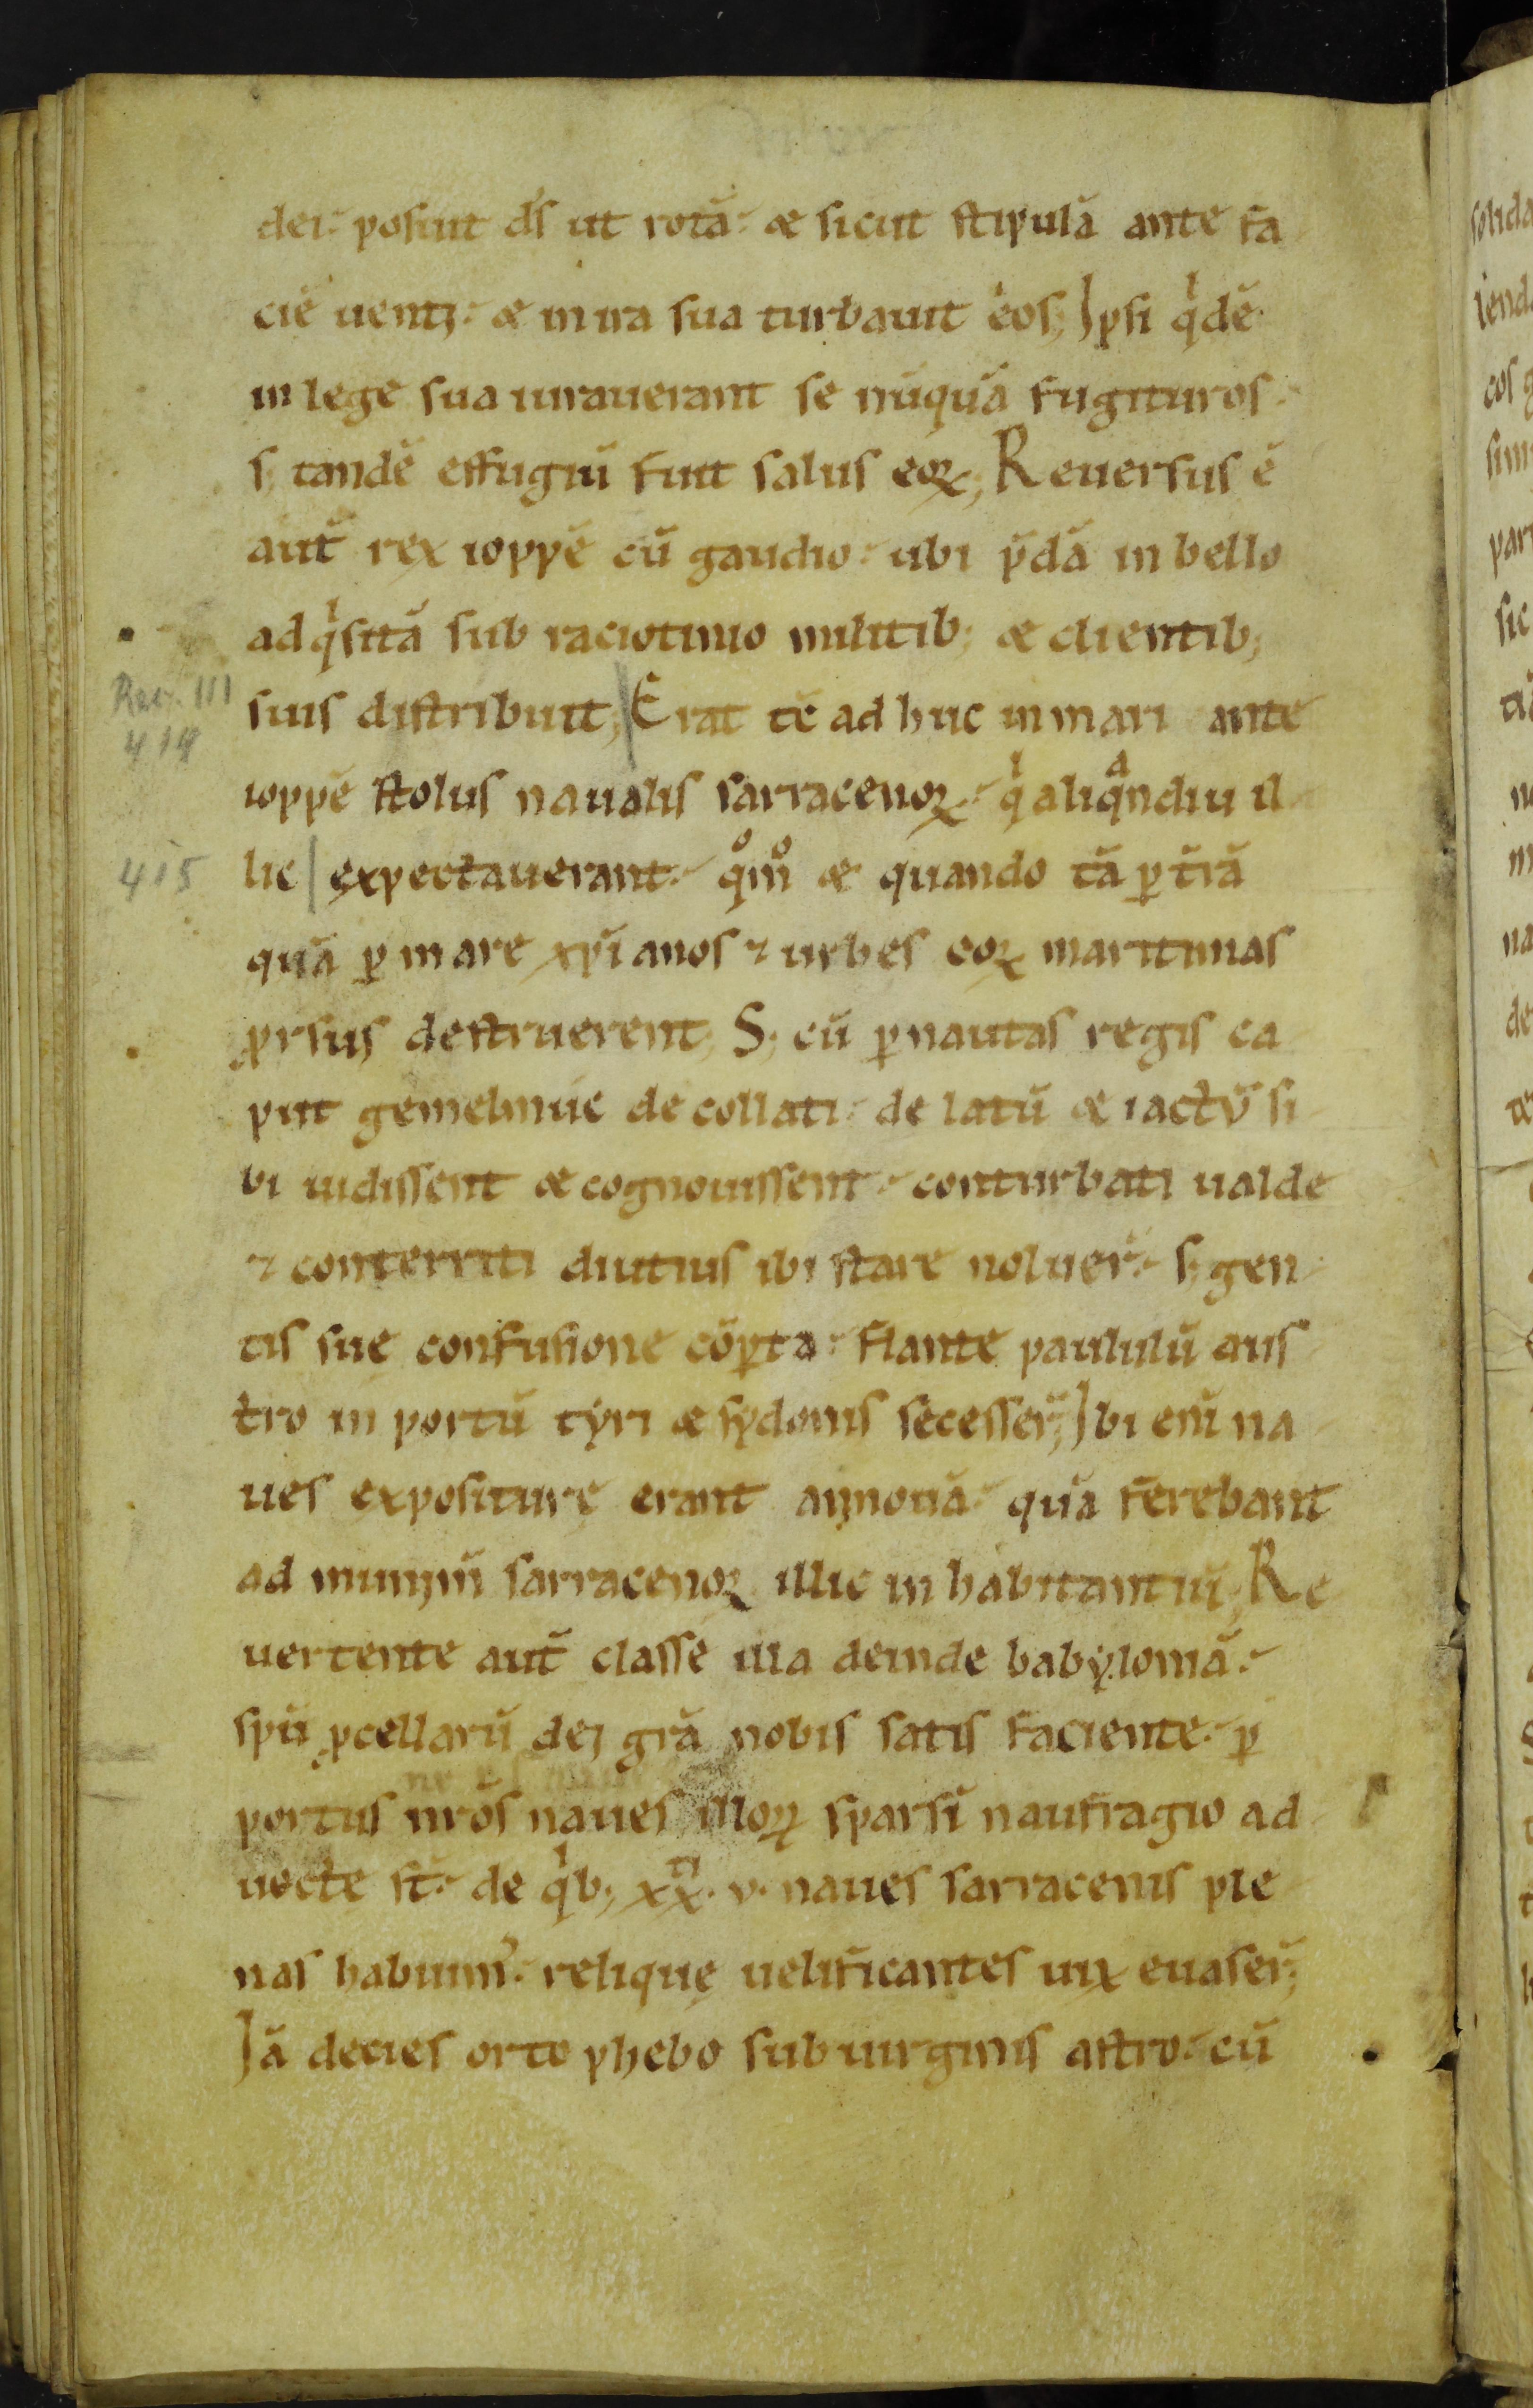 dei. posuit ds̄ ut rotā. & sicut stipulā ante fa
ciē uenti. & in ira sua turbauit eos; Ipsi qͥdē
in lege sua iurauerant se nūquā fugituros.
s; tandē effugiū fuit salus eoꝝ; Reuersus ē
aut̄ rex ioppē cū gaudio. ubi p̄dā in bello
adqͥsitā sub raciotinio militib; & clientib;
suis distribuit; Erat tc̄ ad huc in mari ante
ioppē stolus naualis sarracenoꝝ. qͥ aliqͣndiu il
lic expectauerant. qͦmͦ & quando tā ꝑ t̄rā
quā ꝑ mare xp̄ianos ⁊ urbes eoꝝ maritimas
ꝓrsus destruerent; S; cū ꝑ nautas regis ca
put gemelmuc de collati. de latū & iactū si
bi uidissent & cognouissent. conturbati ualde
⁊ conterriti diutius ibi stare noluer̄. s; gen
tis suę confusione cōꝑta. flante paululū aus
tro in portū tyri & sydonis secesser̄; Ibi enī na
ues expositurę erant annonā. quā ferebant
ad muniminī sarracenoꝝ illic in habitantiū; Re
uertente aut̄ classe illa deinde babyloniā.
spū ꝓcellarū dei grā nobis satis faciente. ꝑ
portus nr̄os naues illoꝝ sparsī naufragio ad
uecte st̄. de qͥb; xx.ti v. naues sarracenis ple
nas habuim᾿. reliquę uelificantes uix euaser̄;
Iā decies orto phebo sub uirginis astro. cū
Rec. III
414
415